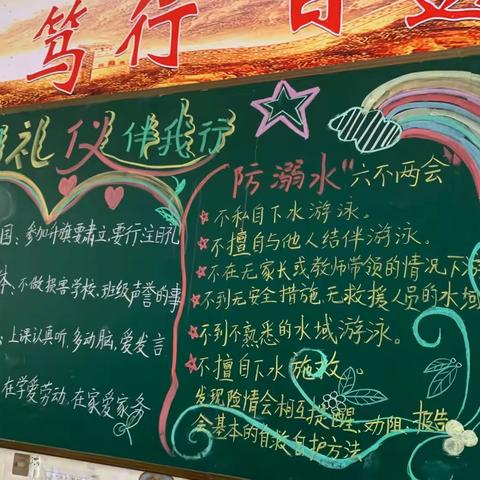 笃行
礼仪伴我行
国：参加升旗要肃立，要行注目礼
体、不做损害学校、班级声誉的事
：上课认真听，多动脑，爱发言
在学爱劳动，在家爱家务
防溺水“六不两会”
不私自下水游泳。
不擅自与他人结伴游泳。
不在无家长或教师带领的情况下游
不到无安全措施，无救援人员的水域
不到不熟悉的水域游泳。
不擅自下水施救。
发现险情会相互提醒、劝阻、报告
会基本的自救自护方法